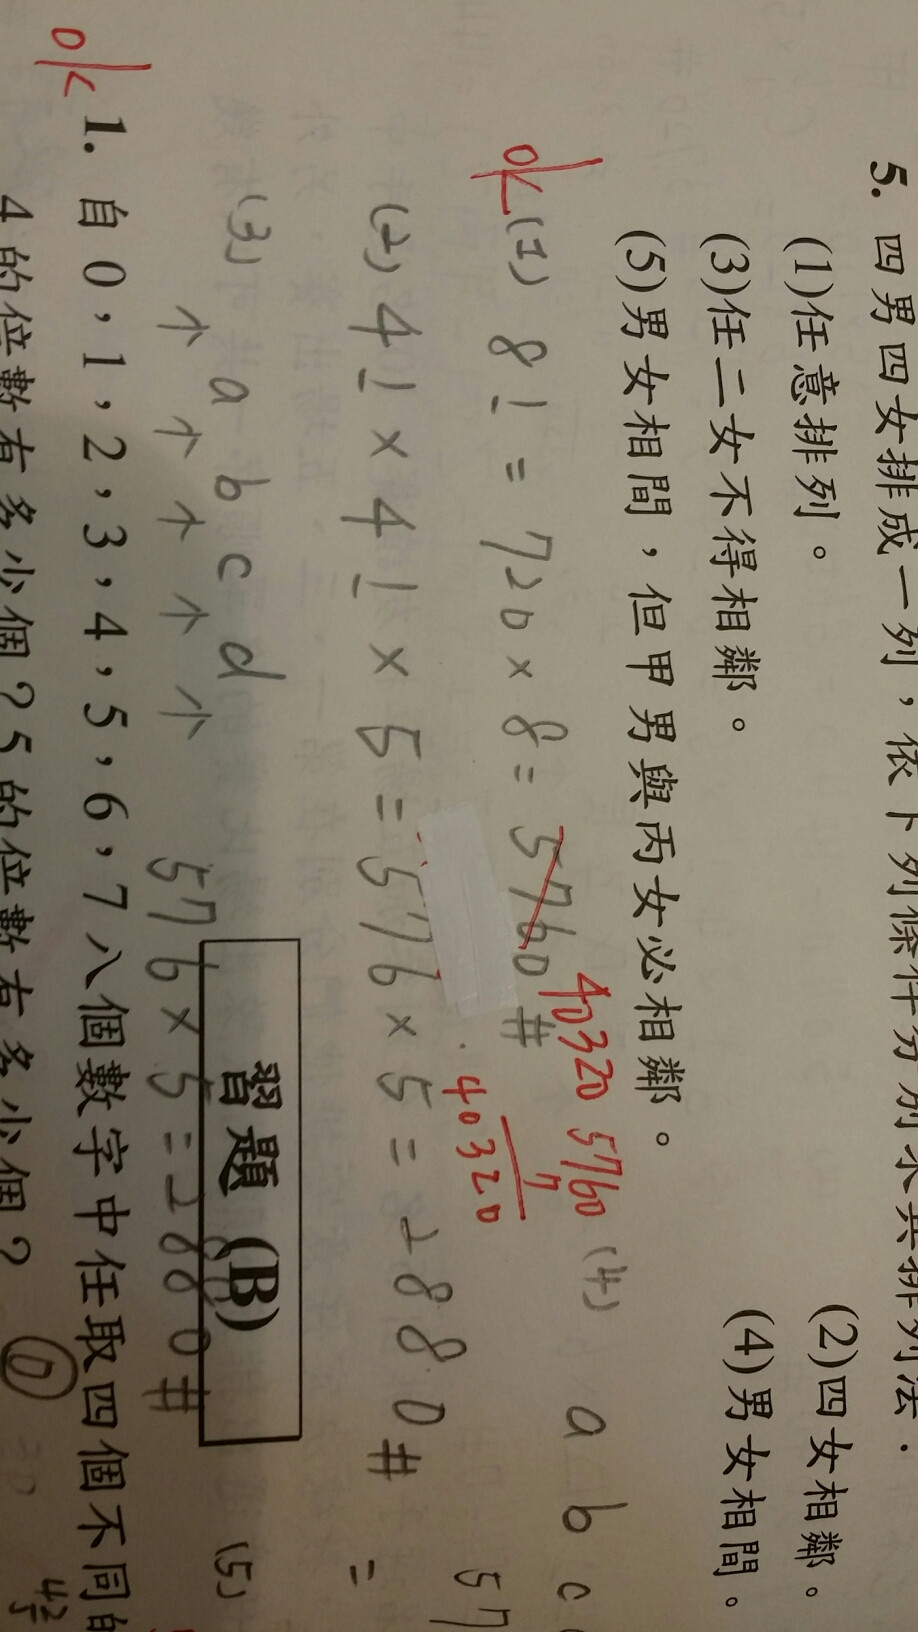 5. 四男四女排成一列，依下列條件分別求其排列法：
(1)任意排列。 (2)四女相鄰。
(3)任二女不得相鄰。 (4)男女相間。
(5)男女相間，但甲男與丙女必相鄰。
ok (1) 8! = 720 × 8 = 5760 #
40320 5760
7
40320
(4) a b c
(2) 4! × 4! × 5 = 576 × 5 = 2880 #
57
=
(3) a b c d
↑ ↑ ↑ ↑ ↑ 576 × 5 = 2880 #
(5)
習題 (B)
ok 1. 自 0，1，2，3，4，5，6，7 八個數字中任取四個不同的
4 的位數有多少個？5 的位數有多少個？